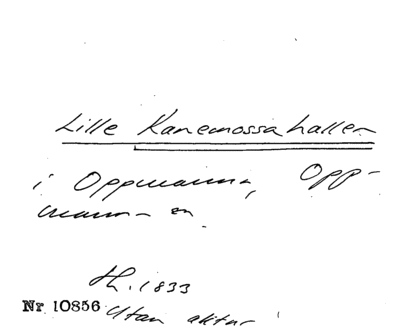 Lille Kanemossahallen
i Oppmanna, Opp-
manna sn
H. 1833
Nr 10856 Utan aktnr